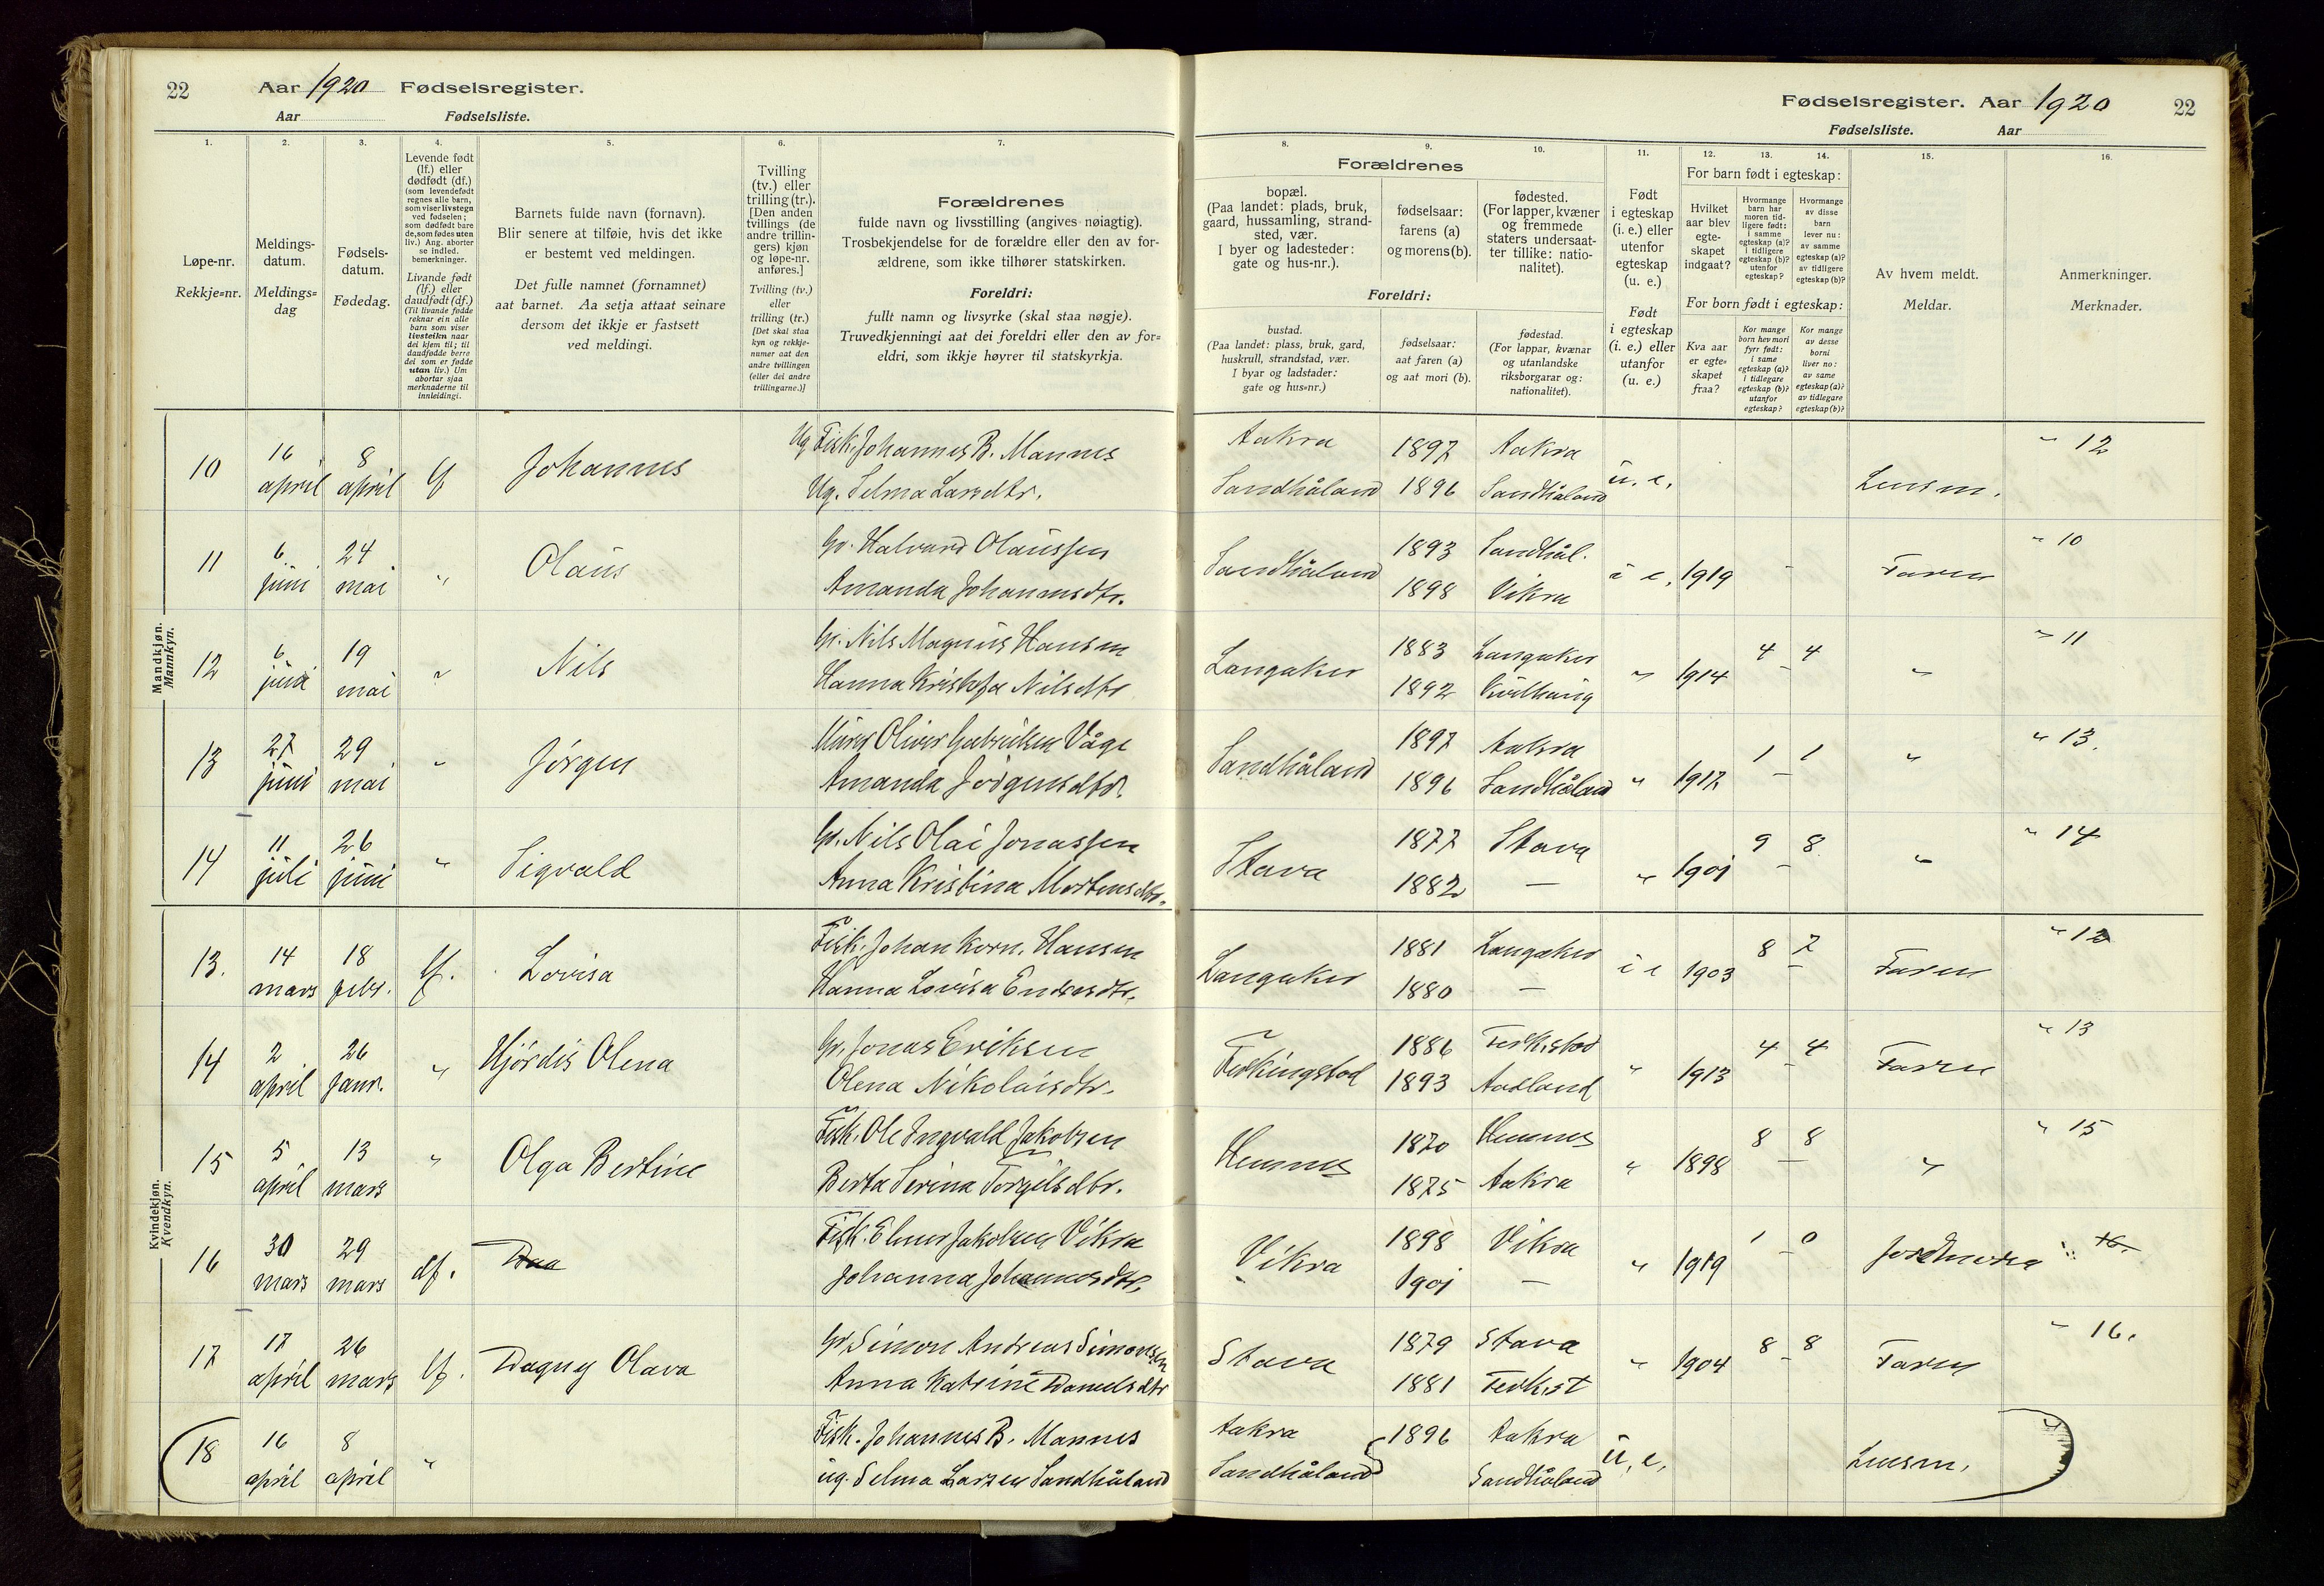 22
Aar 1920 Fødselsregister.
Aar Fødselsliste.
Fødselsregister. Aar 1920
22
Fødselsliste. Aar
1.
2.
3.
4.
5.
6.
7.
8.
9.
10.
11.
12.
13.
14.
15.
16.
Løpe-nr.
Rekkje=nr.
Meldings-
datum.
Meldings=
dag
Fødsels-
datum.
Fødedag.
Levende født
(lf.) eller
dødfødt (df.)
(som levendefødt
regnes alle barn,
som viser livstegn
ved fødselen;
som dødfødt bare
de, som fødes uten
liv.) Ang. aborter
se indled.
bemerkninger.
Livande født
(lf.) eller
daudfødt (df.)
(Til livande fødde
reknar ein alle
barn som viser
livsteikn naar
dei kjem til; til
daudfødde berre
dei som er fødde
utan liv.) Um
abortar sjaa
merknaderne til
innleidingi.
Barnets fulde navn (fornavn).
Blir senere at tilføie, hvis det ikke
er bestemt ved meldingen.
Det fulle namnet (fornamnet)
aat barnet. Aa setja attaat seinare
dersom det ikkje er fastsett
ved meldingi.
Tvilling
(tv.) eller
trilling (tr.).
[Den anden
tvillings (de
andre trillin-
gers) kjøn
og løpe-nr.
anføres.]
Tvilling (tv.)
eller
trilling (tr.)
[Det skal staa
kyn og rekkje-
numer aat den
andre tvillingen
(eller dei andre
trillingarne.)]
Forældrenes
fulde navn og livsstilling (angives nøiagtig).
Trosbekjendelse for de forældre eller den av for-
ældrene, som ikke tilhører statskirken.
Foreldri:
fullt namn og livsyrke (skal staa nøgje).
Truvedkjenningi aat dei foreldri eller den av for=
eldri, som ikkje høyrer til statskyrkja.
Forældrenes
bopæl.
(Paa landet: plads, bruk,
gaard, hussamling, strand-
sted, vær.
I byer og ladesteder:
gate og hus-nr.).
fødselsaar:
farens (a)
og morens (b).
fødested.
(For lapper, kvæner
og fremmede
staters undersaat-
ter tillike: natio-
nalitet).
Foreldri:
bustad.
(Paa landet: plass, bruk, gard,
huskrull, strandstad, vær.
I byar og ladstader:
gate og hus=nr.)
fødselsaar:
aat faren (a)
og aat mori (b).
fødestad.
(For lappar, kvænar
og utanlandske
riksborgarar og:
nationalitet).
Født
i egteskap
(i. e.) eller
utenfor
egteskap
(u. e.)
Født
i egteskap
(i. e.) eller
utanfor
(u. e.)
For barn født i egteskap:
Hvilket
aar blev
egte-
skapet
indgaat?
Hvormange
barn har
moren tid-
ligere født:
i samme
egteskap (a)?
i tidligere
egteskap (b)?
utenfor
egteskap?
Hvormange
av disse
barn
lever nu:
av samme
egteskap (a)?
av tidligere
egteskap (b)?
For born født i egteskap:
Kva aar
er egte=
skapet
fraa?
Kor mange
born hev mori
fyrr født:
i same
egteskap (a)?
i tidlegare
egteskap (b)?
utanfor
egteskap?
Kor mange
av desse
borni
liver no:
av same
egteskap (a)?
av tidlegare
egteskap (b)?
Av hvem meldt.
Meldar.
Anmerkninger.
Merknader.
Mandkjøn.
Mannkyn.
10 16 april 8 april lf Johannes Ug. Fisk. Johannes B. Mannes Aakra 1897 Aakra u. e. Lensm. " 12
Ug. Selma Larsdtr. Sandhåland 1896 Sandhåland
11 6 juni 24 mai " Olaus Gr. Halvard Olaussen Sandhåland 1893 Sandhål. i e. 1919 - Faren " 10
Amanda Johannesdtr. 1898 Vikra
12 6 juni 19 mai " Nils Gr. Nils Magnus Hansen Langaker 1883 Langaker " 1914 4 - 4 " " 11
Hanna Kristofa Nilsdtr 1892 Kvilhaug
13 27 juni 29 mai " Jørgen Oliver Gabrielsen Våge Sandhåland 1897 Aakra " 1917 1 - 1 " " 13.
Amanda Jørgensdtr. 1896 Sandhåland
14 11 juli 26 juni " Sigvald Gr. Nils Olai Jonassen Stava 1877 Stava " 1901 9 - 8 " " 14
Anna Kristina Mortensdtr. 1882 —
Kvindekjøn.
Kvendkyn.
13. 14 mars 18 febr. lf. Lovisa Fisk. Johan Korn. Hansen Langaker 1881 Langaker i e 1903 8 - 7 Faren " 12
Hanna Lovisa Endresdtr. 1880 —
14 2 april 26 janr. " Hjørdis Olena Gr. Jonas Eriksen Ferkingstad 1886 Ferkistad " 1913 4 - 4 Faren " 13
Olena Nikolaisdtr. 1893 Aadland
15 5 april 13 mars " Olga Bertine Fisk. Ole Ingvald Jakobsen Hemnes 1870 Hemnes " 1898 8 - 8 " " 15
Berta Serina Torgilsdtr. 1875 Aakra
16 30 mars 29 mars df. Fisk. Elmer Jakobsen Vikra Vikra 1898 Vikra " 1919 1 - 0 Jordmora " 16.
Johanna Johannesdtr. 1901 —
17 17 april 26 mars lf. Dagny Olava Gr. Simon Andreas Simonsen Stava 1879 Stava " 1904 8 - 8 Faren " 16.
Anna Katrine Danielsdtr 1881 Ferkist
18 16 april 8 april " Fisk. Johannes B. Mannes Aakra 1896 Aakra u. e. Lensm. "
ug. Selma Larsen Sandhåland Sandhåland Sandhåland